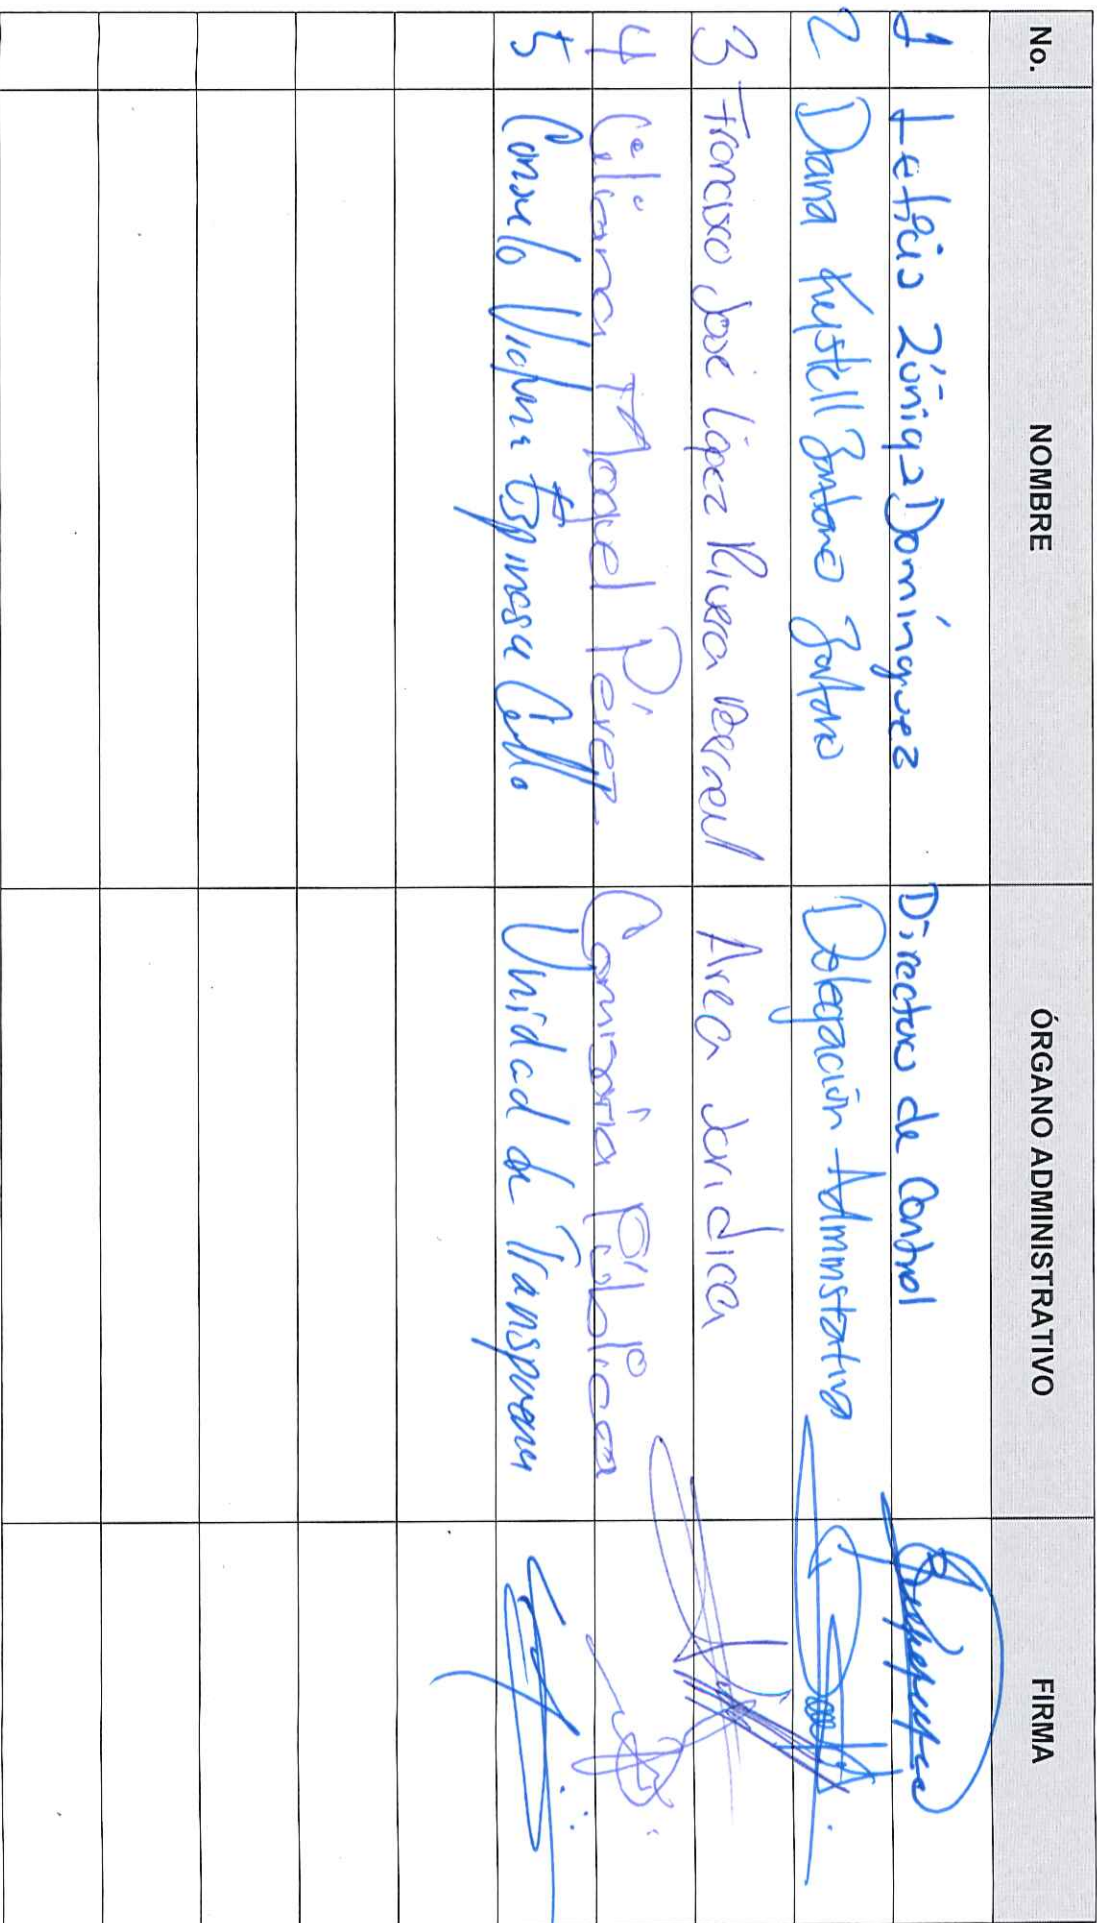 No. NOMBRE ÓRGANO ADMINISTRATIVO FIRMA
1 Leticia Zúñiga Domínguez Directora de Control
2 Diana Krystell Delegación Administrativa
3 Francisco José López Rivera Area Juridica
4 Ciliana Moguel Pérez Comisaria Pública
5 Consuelo Virginia Espinosa Unidad de